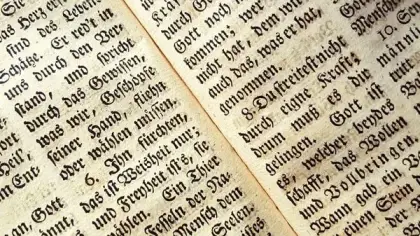 Heil,
en Ent-
an, Gott
sind des Lebens
Schätze. Er red't in
uns durch den Ver-
stand, und spricht
durch das Gewissen,
was wir, Geschöpfe
seiner Hand, fliehn
oder wählen müssen.
6. Ihn fürchten,
das ist Weisheit nur;
und Freyheit ist's, sie
wählen. Ein Thier
Fesseln der Na-
Mensch dem
Seelen-
durch
Gott noch
kommen; wer
nicht hat, dem
auch das, was er hat,
genommen.
8. Das streitet nicht
durch eigne Kraft;
drum muß es dir
gelingen. Gott ist
es, welcher beydes
schafft, das Wollen
und Vollbringen
Wann gab ein
einen
10.